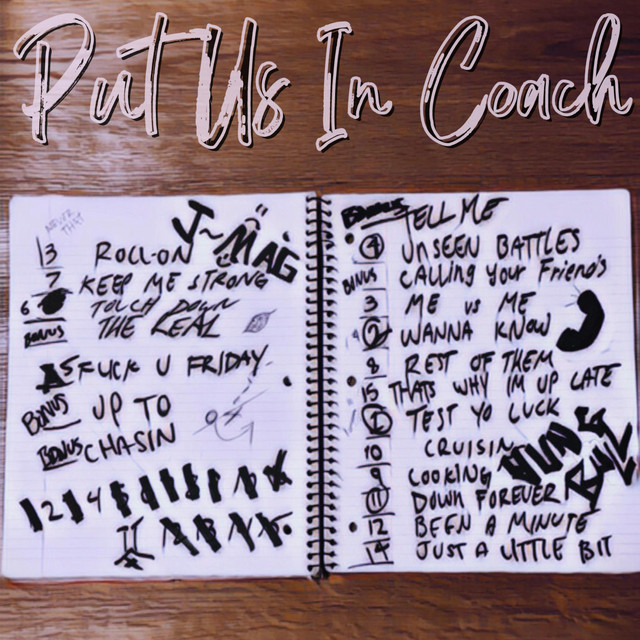 Put Us In Coach
J~MAG
13 ROLL-ON
7 KEEP ME STRONG
6 TOUCH DOWN
BONUS THE REAL
5 FUCK U FRIDAY
BONUS UP TO
BONUS CHASIN
1 2 4
BONUS TELL ME
4 UNSEEN BATTLES
BONUS CALLING YOUR FRIENDS
3 ME VS ME
2 WANNA KNOW
8 REST OF THEM
15 THATS WHY IM UP LATE
TEST YO LUCK
10 CRUISIN
9 COOKING
11 DOWN FOREVER
12 BEEN A MINUTE
14 JUST A LITTLE BIT